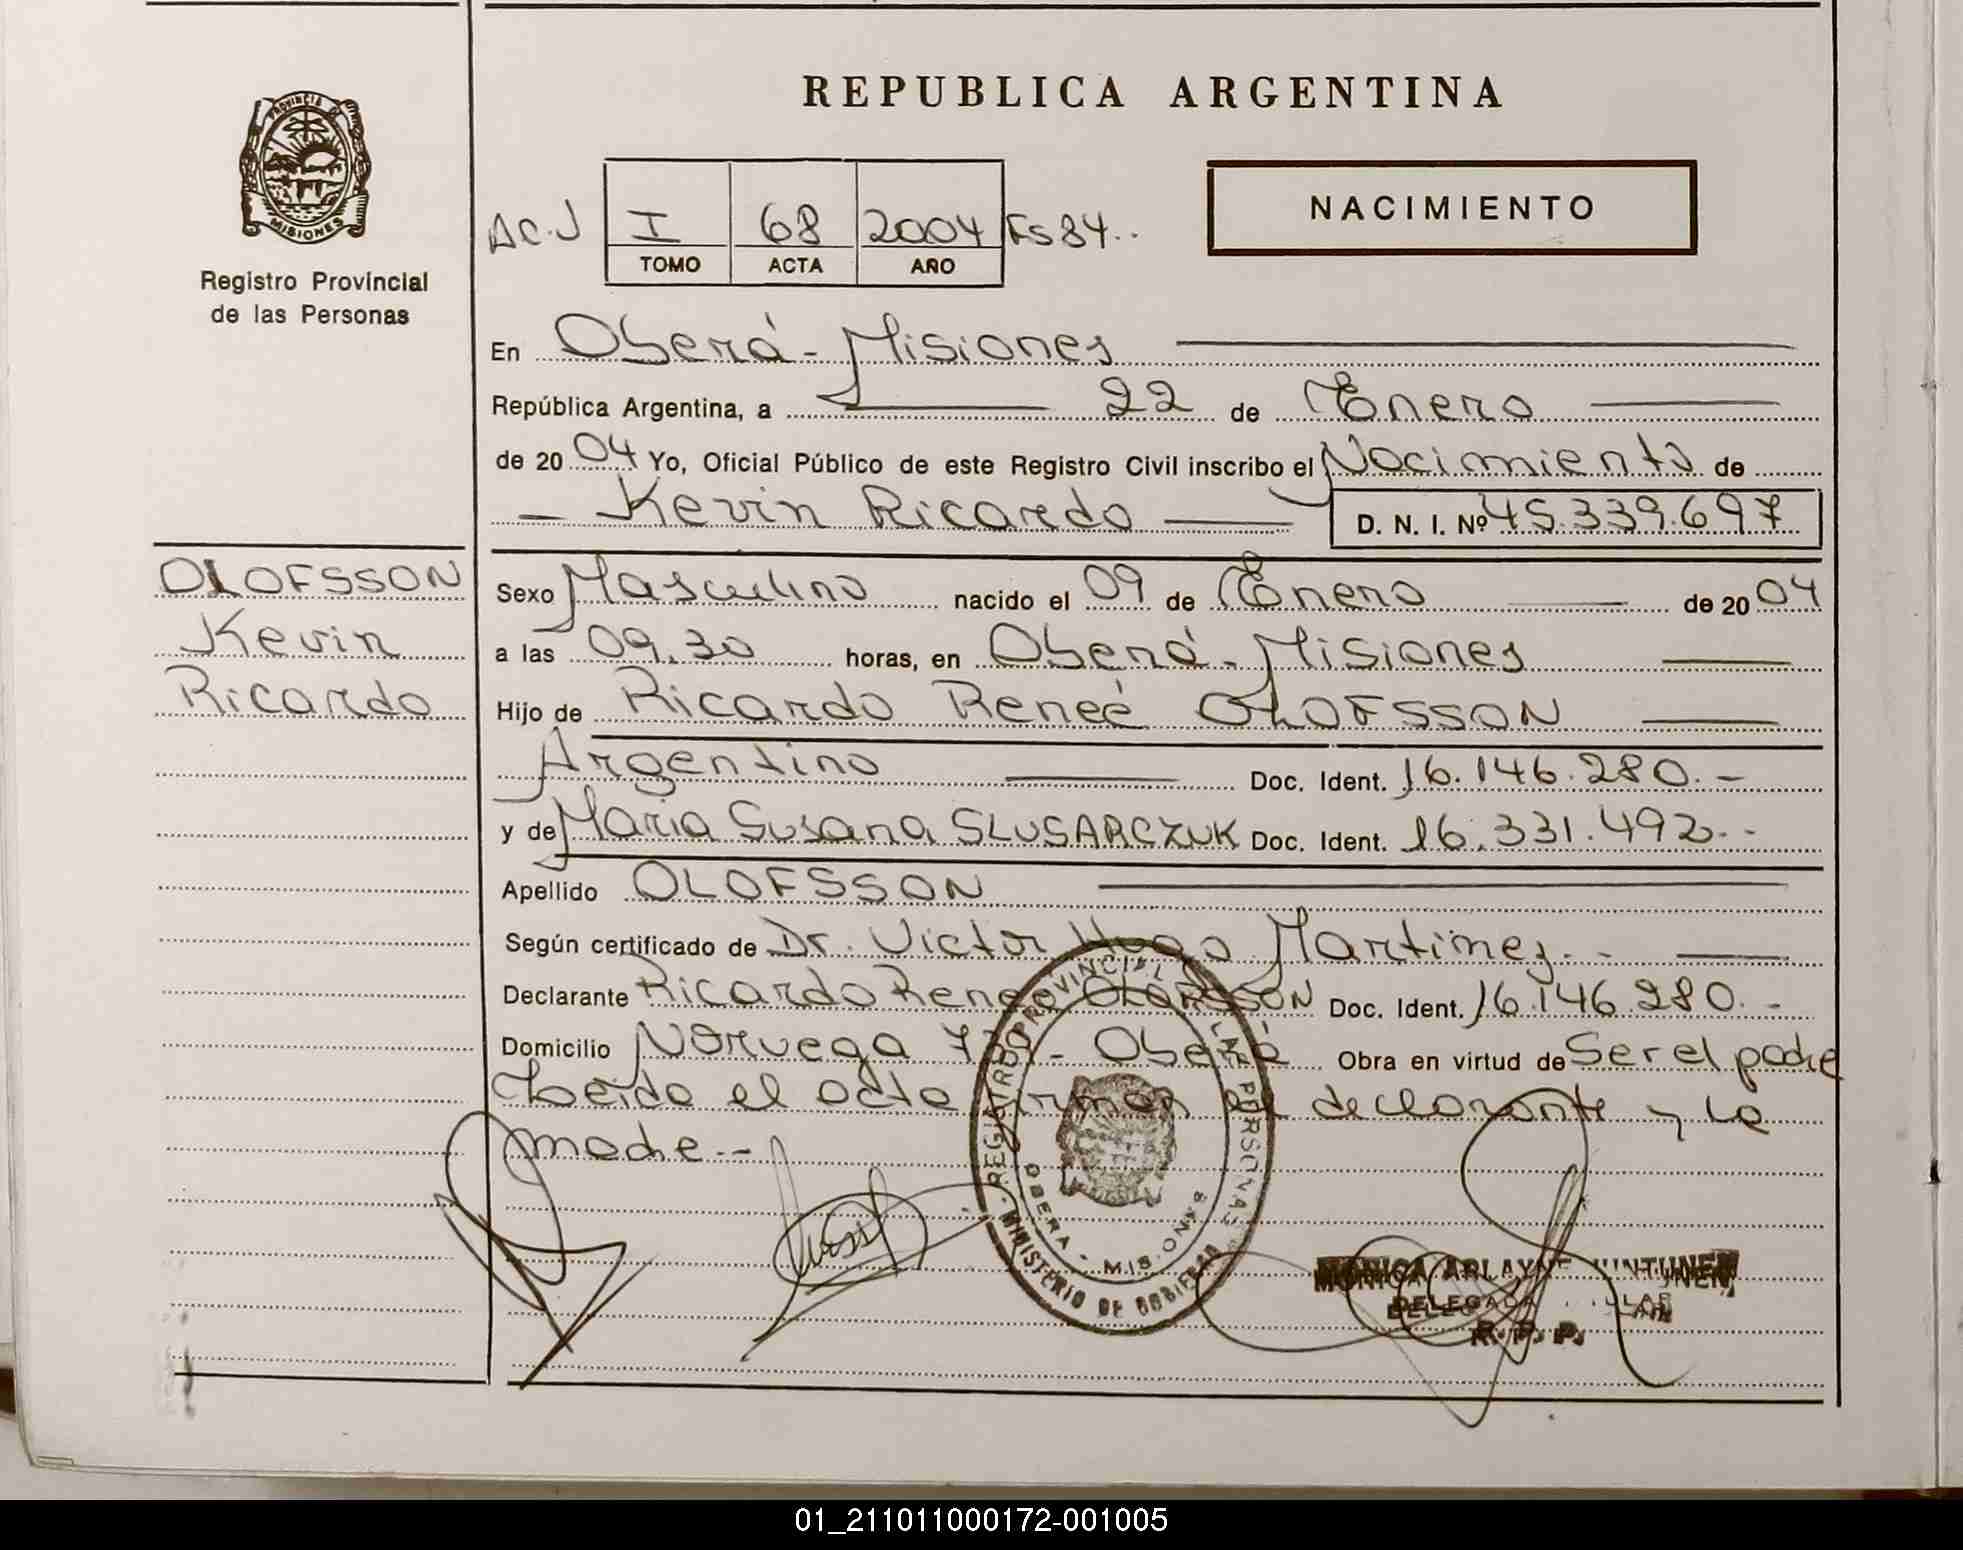 REPUBLICA ARGENTINA
PROVINCIA DE
MISIONES
Registro Provincial
de las Personas
AC.J I 68 2004 Fs 84..
TOMO ACTA AÑO
NACIMIENTO
En Oberá - Misiones
República Argentina, a 22 de Enero
de 2004 Yo, Oficial Público de este Registro Civil inscribo el Nacimiento de
Kevin Ricardo D. N. I. Nº 45.339.697
OLOFSSON
Kevin
Ricardo
Sexo Masculino nacido el 09 de Enero de 2004
a las 09.30 horas, en Oberá - Misiones
Hijo de Ricardo Reneé OLOFSSON
Argentino Doc. Ident. 16.146.280.-
y de Maria Susana SLUSARCZUK Doc. Ident. 16.331.492.-
Apellido OLOFSSON
Según certificado de Dr. Victor Hugo Martinez.-
Declarante Ricardo Reneé OLOFSSON Doc. Ident. 16.146.280.-
Domicilio Noruega - Oberá Obra en virtud de Ser el padre
Leida el acta firman el declarante y la
madre.-
REGISTRO PROVINCIAL DE LAS PERSONAS
OBERA - MISIONES
MINISTERIO DE GOBIERNO
MONICA ARLAYNE
DELEGADA TITULAR
R. P. P.
01_211011000172-001005